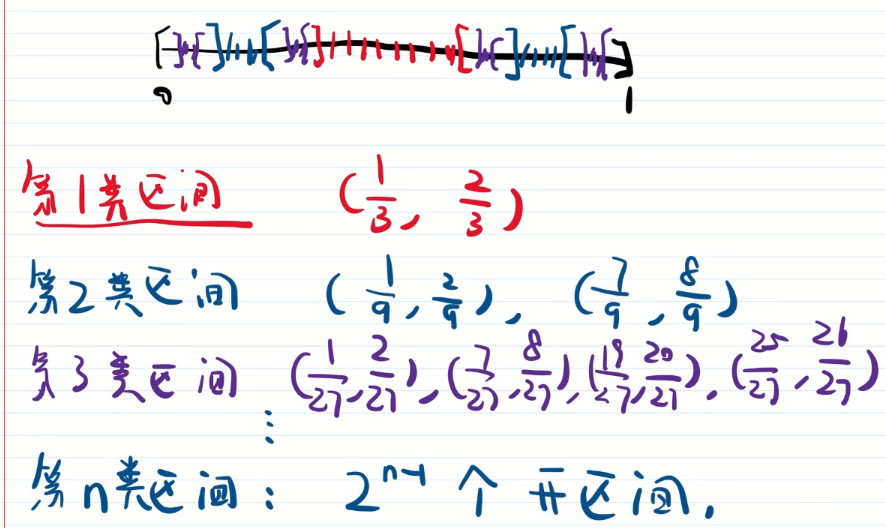 0 1
第1类区间 (1/3, 2/3)
第2类区间 (1/9, 2/9), (7/9, 8/9)
第3类区间 (1/27, 2/27), (7/27, 8/27), (19/27, 20/27), (25/27, 26/27)
⋮
第n类区间: 2^{n-1} 个开区间.